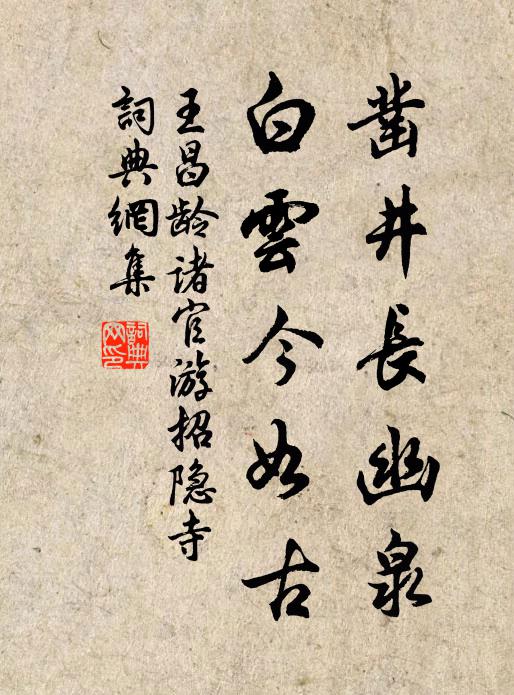 凿井長幽泉
白雲今如古
王昌龄诸官游招隐寺
詞典網集
詞典网印